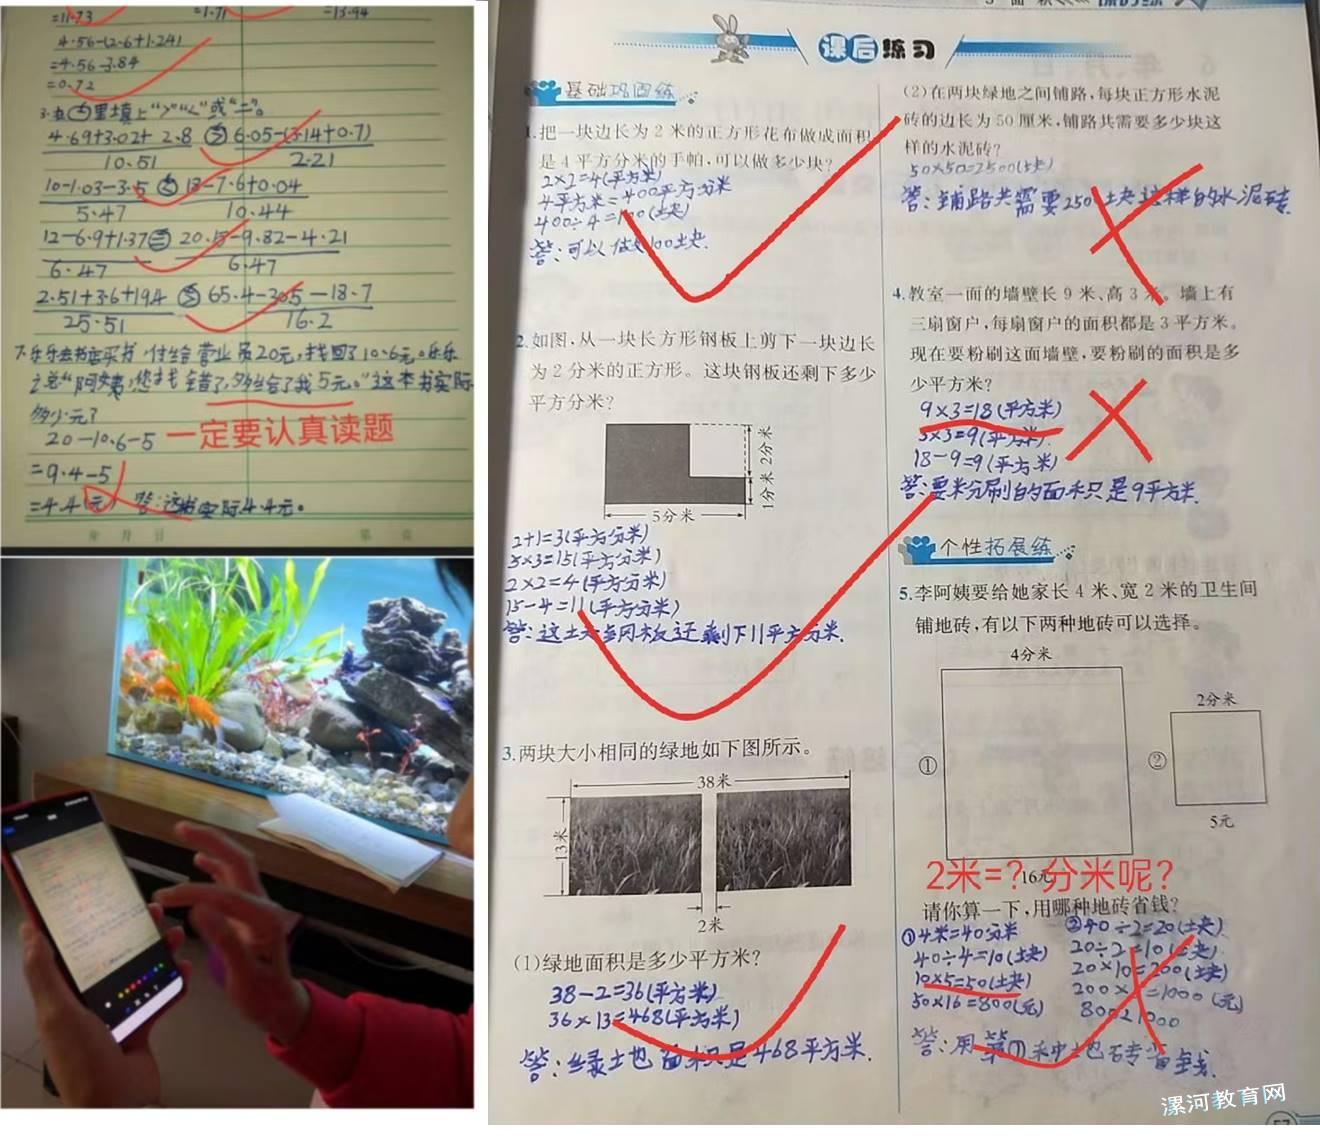 =11.73
=1.71
=13.94
4.56-(2.6+1.24)
=4.56-3.84
=0.72
3.在○里填上">""<"或"="。
4.69+3.02+2.8 > 6.05-(3.14+0.7)
10.51 2.21
10-1.03-3.5 < 18-7.6+0.04
5.47 10.44
12-6.9+1.37 = 20.5-9.82-4.21
6.47 6.47
2.51+3.6+19.4 > 65.4-30.5-18.7
25.51 16.2
7.乐乐去书店买书,付给营业员20元,找回了10.6元。乐乐
说"阿姨,您找错了,多给了我5元。"这本书实际
多少元?
20-10.6-5
一定要认真读题
=9.4-5
=4.4(元) 答:这书实际4.4元。
年 月 日
课后练习
基础巩固练
1.把一块边长为2米的正方形花布做成面积
是4平方分米的手帕,可以做多少块?
2×2=4(平方米)
4平方米=400平方分米
400÷4=100(块)
答:可以做100块.
2.如图,从一块长方形钢板上剪下一块边长
为2分米的正方形。这块钢板还剩下多少
平方分米?
2分米
1分米
5分米
2+1=3(平方分米)
5×3=15(平方分米)
2×2=4(平方分米)
15-4=11(平方分米)
答:这块钢板还剩下11平方分米.
3.两块大小相同的绿地如下图所示。
38米
13米
2米
(1)绿地面积是多少平方米?
38-2=36(平方米)
36×13=468(平方米)
答:绿地面积是468平方米.
(2)在两块绿地之间铺路,每块正方形水泥
砖的边长为50厘米,铺路共需要多少块这
样的水泥砖?
50×50=2500(块)
答:铺路共需要250块这样的水泥砖.
4.教室一面的墙壁长9米、高3米。墙上有
三扇窗户,每扇窗户的面积都是3平方米。
现在要粉刷这面墙壁,要粉刷的面积是多
少平方米?
9×3=18(平方米)
3×3=9(平方米)
18-9=9(平方米)
答:要粉刷的面积是9平方米.
个性拓展练
5.李阿姨要给她家长4米、宽2米的卫生间
铺地砖,有以下两种地砖可以选择。
4分米
2分米
①
②
5元
16元
2米=?分米呢?
请你算一下,用哪种地砖省钱?
①4米=40分米
40÷4=10(块)
10×5=50(块)
50×16=800(元)
②40÷2=20(块)
20÷2=10(块)
20×10=200(块)
200×5=1000(元)
800<1000
答:用第①种地砖省钱.
漯河教育网
57